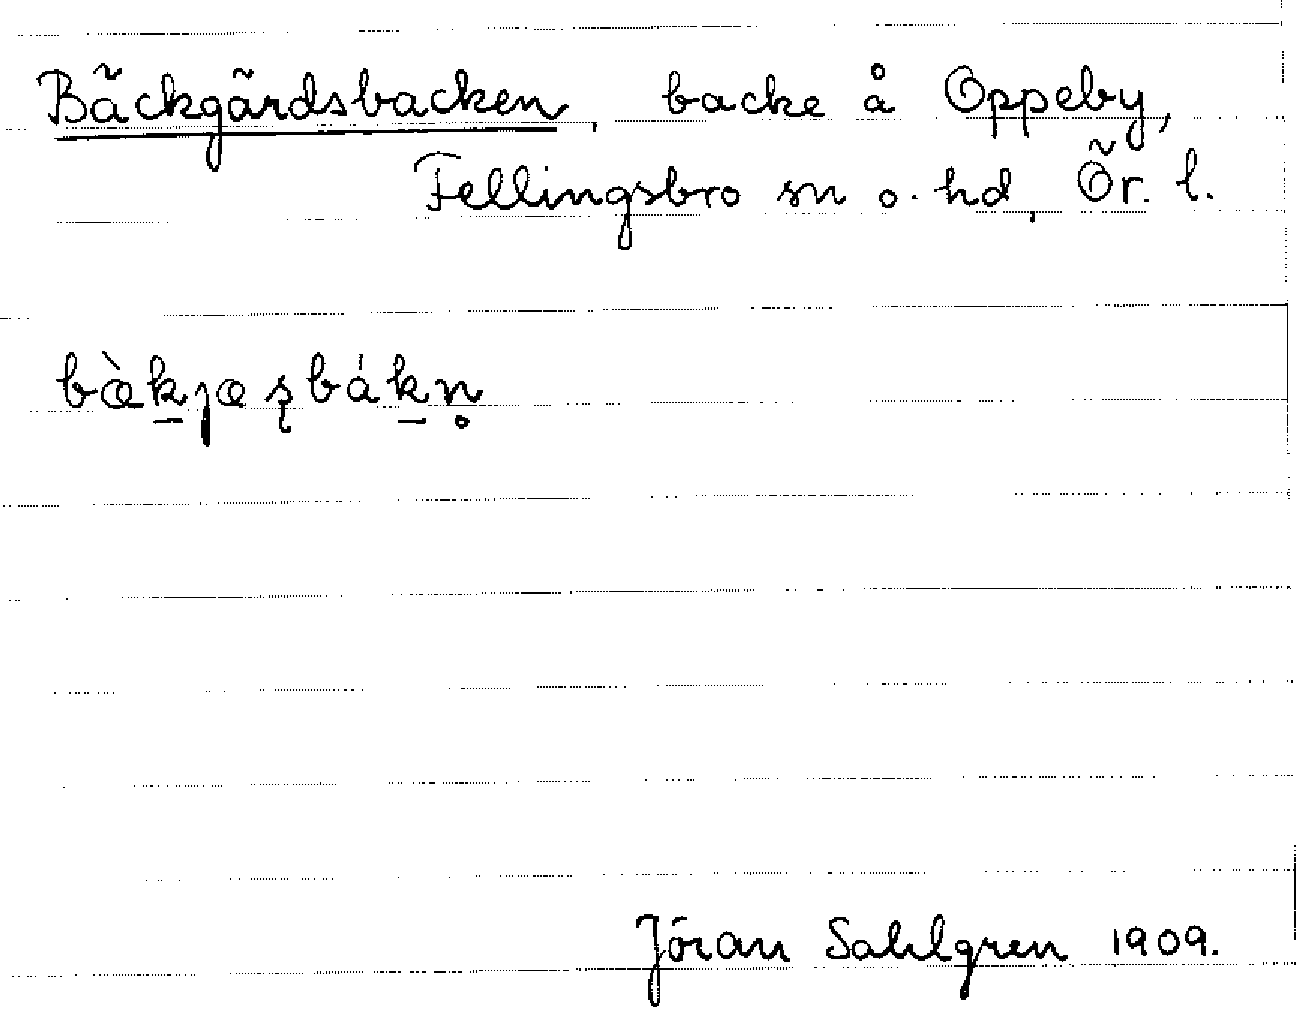 Bäckgärdsbacken, backe å Oppeby,
Fellingsbro sn o. hd, Ör. l.
bàk̠jaṣbákn̥
Jöran Sahlgren 1909.